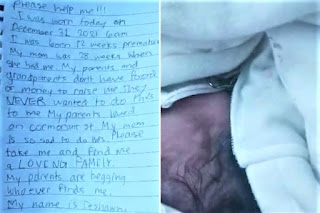 please help me!!!
I was born today on
December 31 2021 6am
I was born 12 weeks premature
My mom was 28 weeks when
she had me. My parents and
grandparents dont have food
or money to raise me they
NEVER wanted to do this
to me My parents lived
on My Mom
is so sad to do this Please
take me and find me
a LOVING FAMILY.
My parents are begging
whoever finds me.
My name is Teshawn